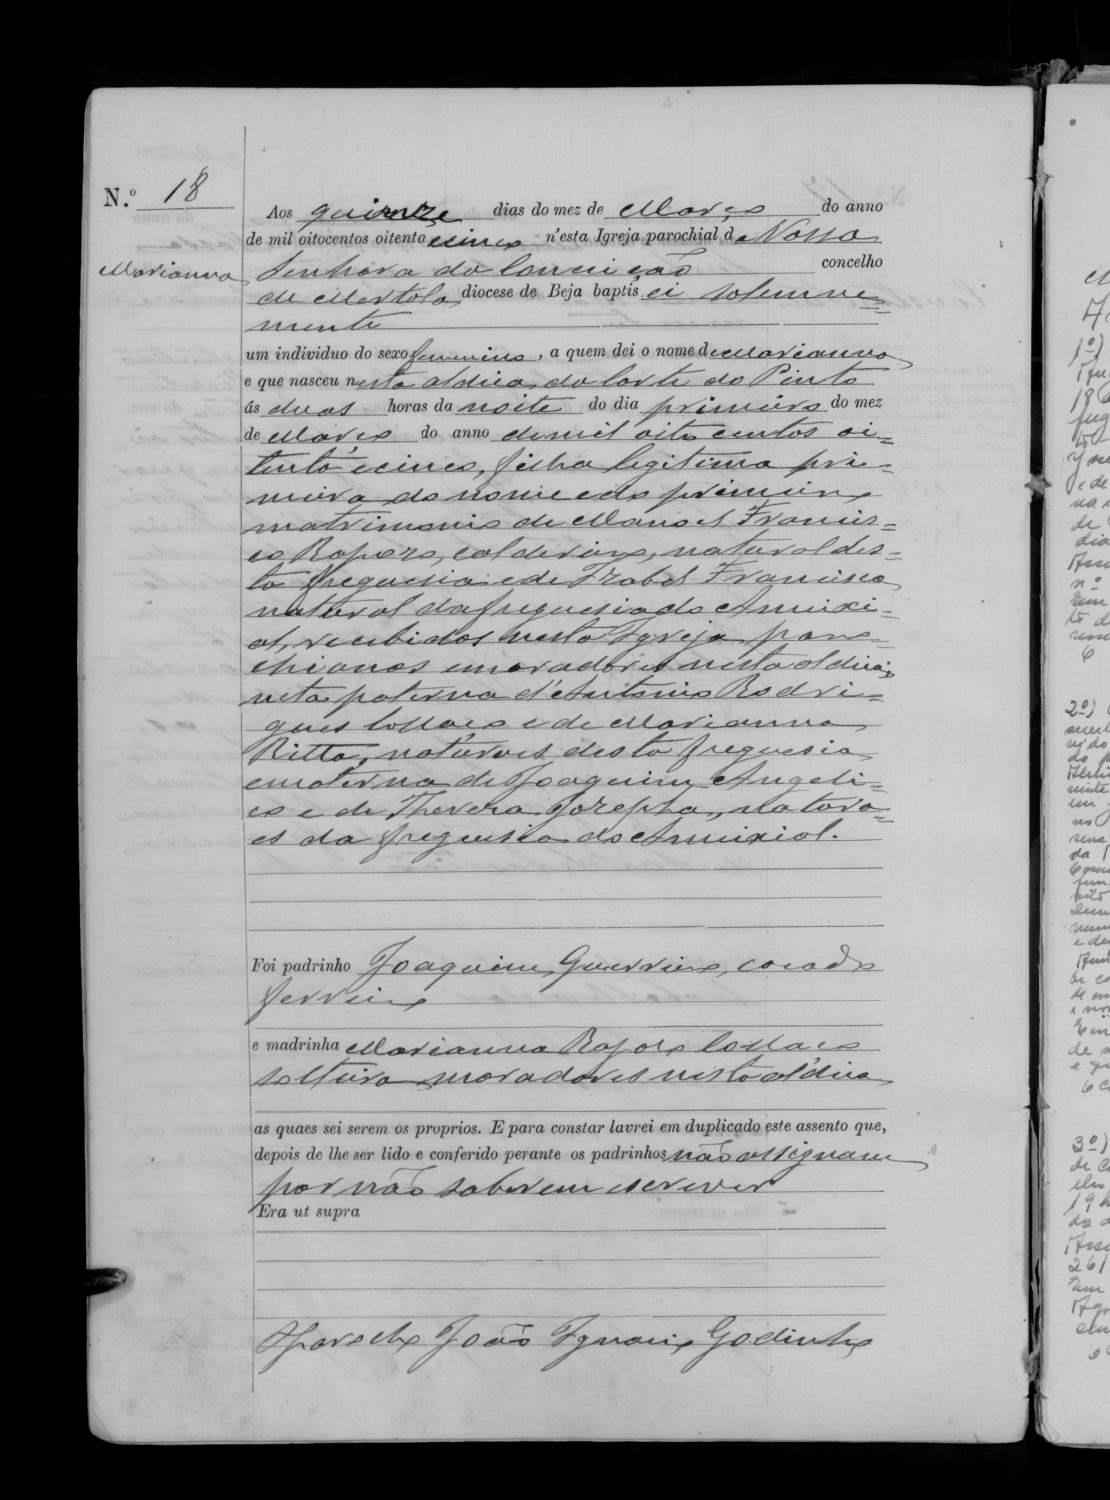 N.º 18
Aos quinze dias do mez de Março do anno
de mil oitocentos oitenta e cinco n'esta Igreja parochial da Nossa
Marianna
Senhora da Conceição concelho
de Mertola, diocese de Beja baptisei solemne=
mente
um individuo do sexo femenino, a quem dei o nome de Marianna
e que nasceu nesta aldeia da Corte do Pinto
ás duas horas da noite do dia primeiro do mez
de Março do anno de mil oito centos oi=
tenta e cinco, filha legitima pri=
meira do nome e do primeiro
matrimonio de Manoel Francis=
co Raposo, caldeireiro, natural des=
ta freguesia e de Izabel Francisca
natural da freguesia do Ameixi=
al, recebidos nesta Igreja paro=
chianos e moradores nesta aldeia;
neta paterna d'Antonio Rodri=
gues Collaço e de Marianna
Ritta, naturaes desta freguesia
e materna de Joaquim Angeli=
co e de Thereza Jozepha, natura=
es da freguesia do Ameixial.
Foi padrinho Joaquim Guerreiro, casado
ferreiro
e madrinha Marianna Raposo Collaço
solteira moradores nesta aldeia
as quaes sei serem os proprios. E para constar lavrei em duplicado este assento que,
depois de lhe ser lido e conferido perante os padrinhos não assignam
por não saberem escrever
Era ut supra
O Parocho João Ignacio Godinho